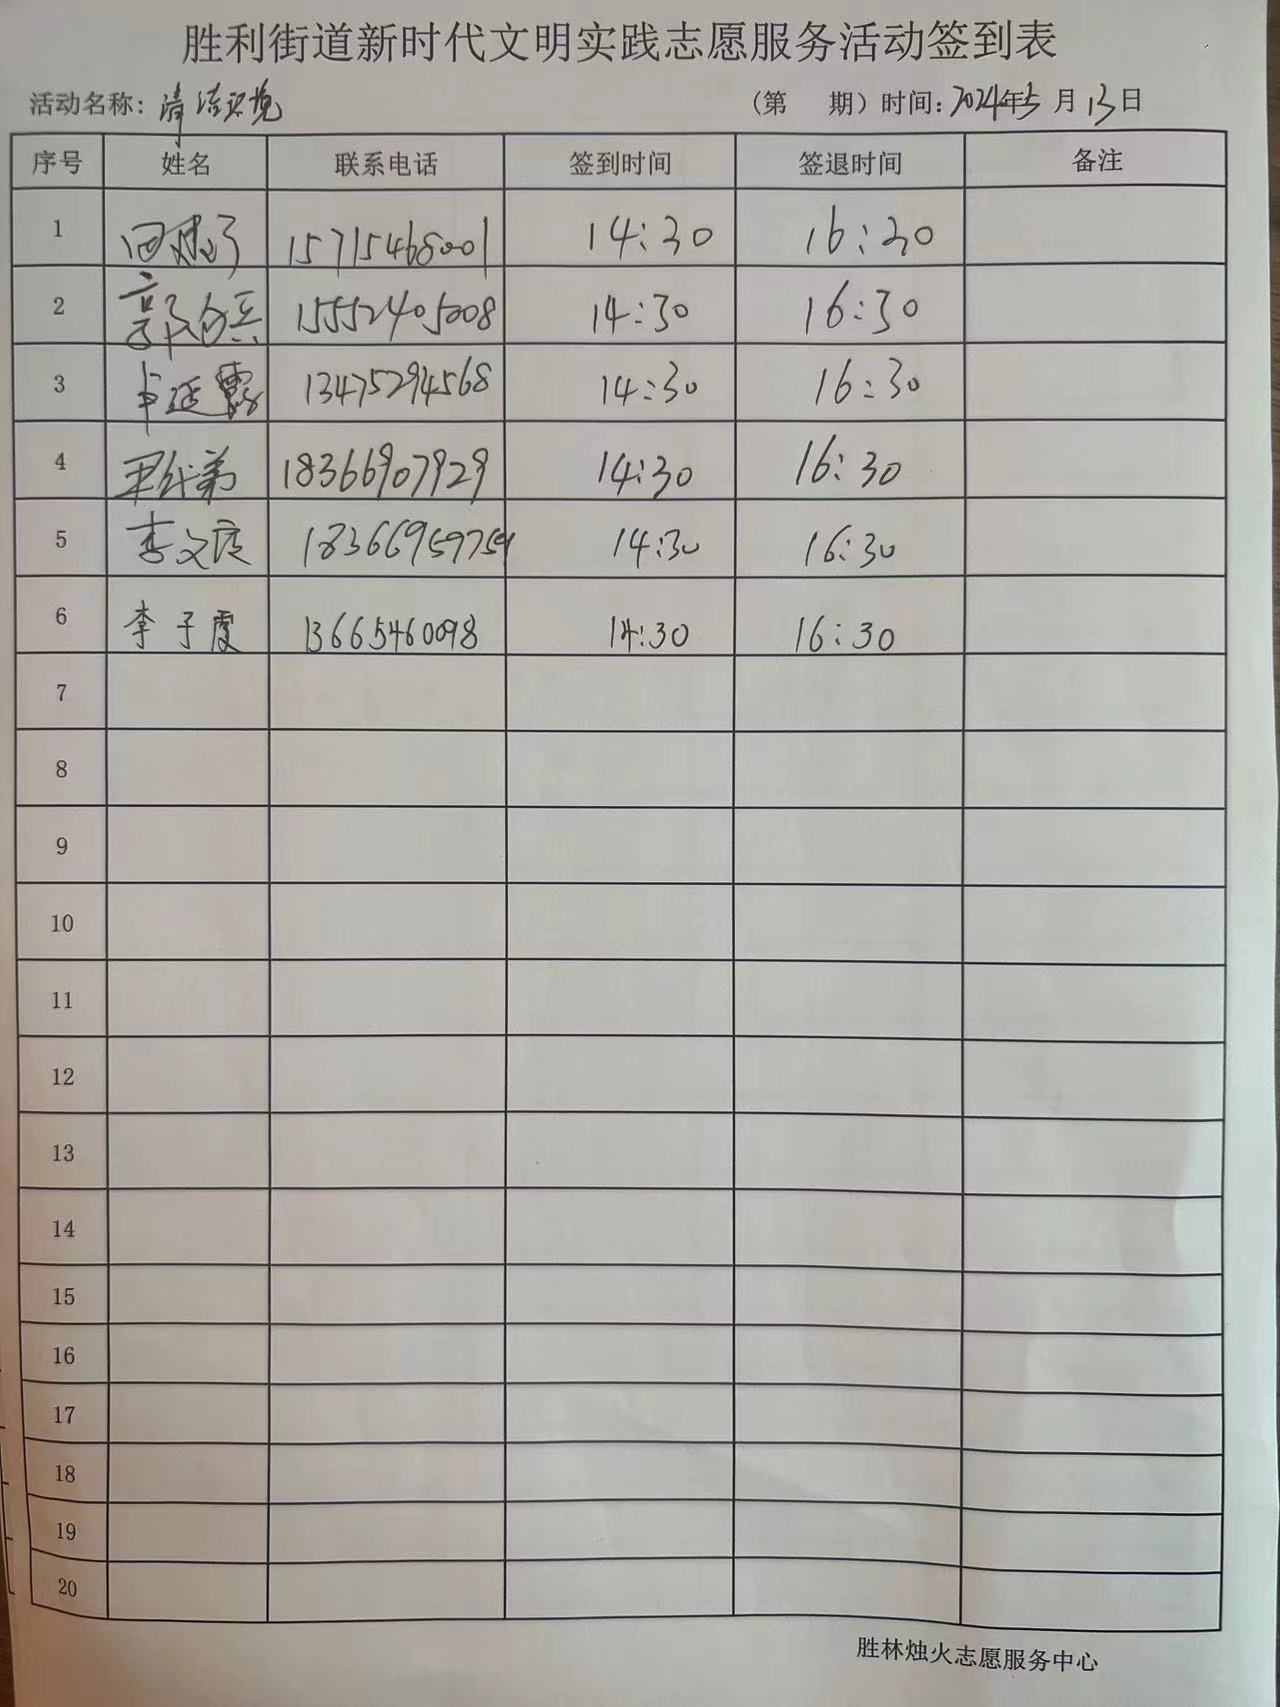 胜利街道新时代文明实践志愿服务活动签到表
活动名称：清洁环境 （第 期）时间：2024年5月13日
序号 姓名 联系电话 签到时间 签退时间 备注
1 15715468001 14:30 16:30
2 15552405008 14:30 16:30
3 13475294568 14:30 16:30
4 18366907929 14:30 16:30
5 李文 14:30 16:30
6 李子霞 13665460098 14:30 16:30
7
8
9
10
11
12
13
14
15
16
17
18
19
20
胜林烛火志愿服务中心